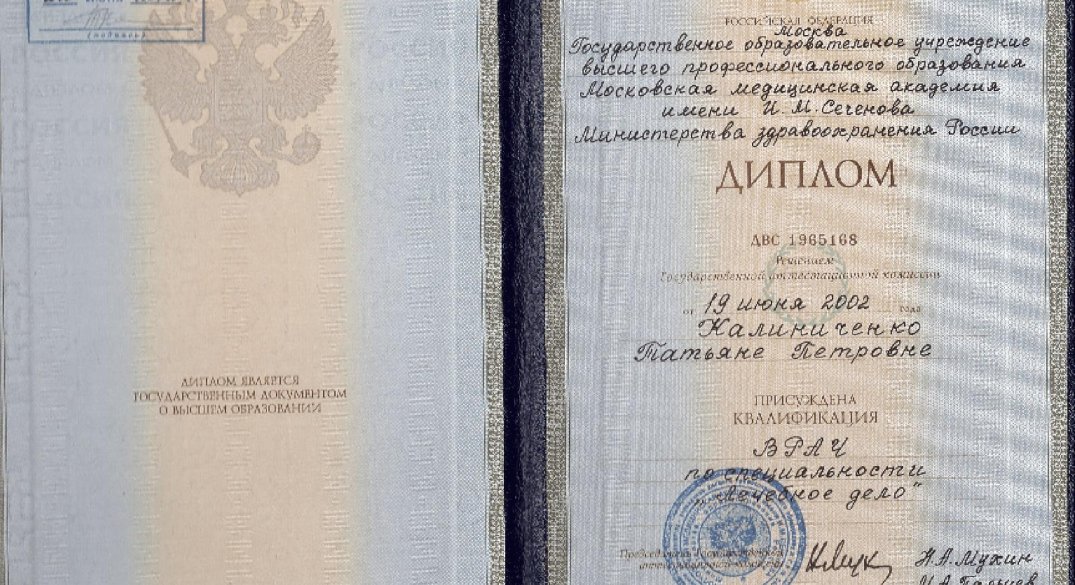 (подпись)
ДИПЛОМ ЯВЛЯЕТСЯ
ГОСУДАРСТВЕННЫМ ДОКУМЕНТОМ
О ВЫСШЕМ ОБРАЗОВАНИИ
РОССИЙСКАЯ ФЕДЕРАЦИЯ
Москва
Государственное образовательное учреждение
высшего профессионального образования
Московская медицинская академия
имени И.М.Сеченова
Министерства здравоохранения России
ДИПЛОМ
ДВС 1965168
Решением
Государственной аттестационной комиссии
от 19 июня 2002 года
Калиниченко
Татьяне Петровне
ПРИСУЖДЕНА
КВАЛИФИКАЦИЯ
ВРАЧ
по специальности
"Лечебное дело"
Председатель Государственной
аттестационной комиссии
Н.А.Мухин